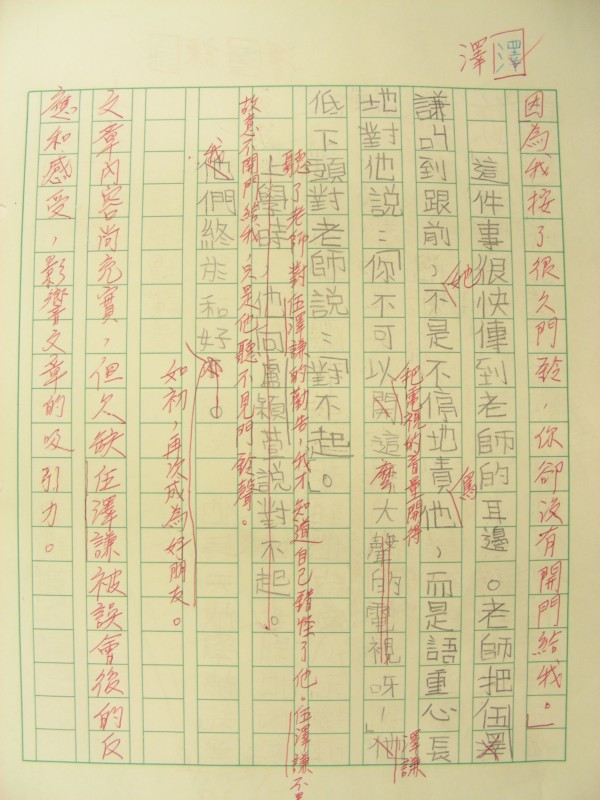 澤澤
因為我按了很久門鈴，你卻沒有開門給我。」
這件事很快傳到老師的耳邊。老師把伍澤
謙叫到跟前，不是不停地責他，而是語重心長
她
罵
地對他說：「你不可以開這麼大聲的電視呀！」他
把電視的音量開得
澤謙
低下頭對老師說：「對不起」。
聽了老師對伍澤謙的勸告，我才知道自己錯怪了他。伍澤謙不是
上學時，他向盧穎萱說對不起。
故意不開門給我，只是他聽不見門鈴聲。
我們終於和好
如初，再次成為好朋友。
文章內容尚充實，但欠缺伍澤謙被誤會後的反
應和感受，影響文章的吸引力。